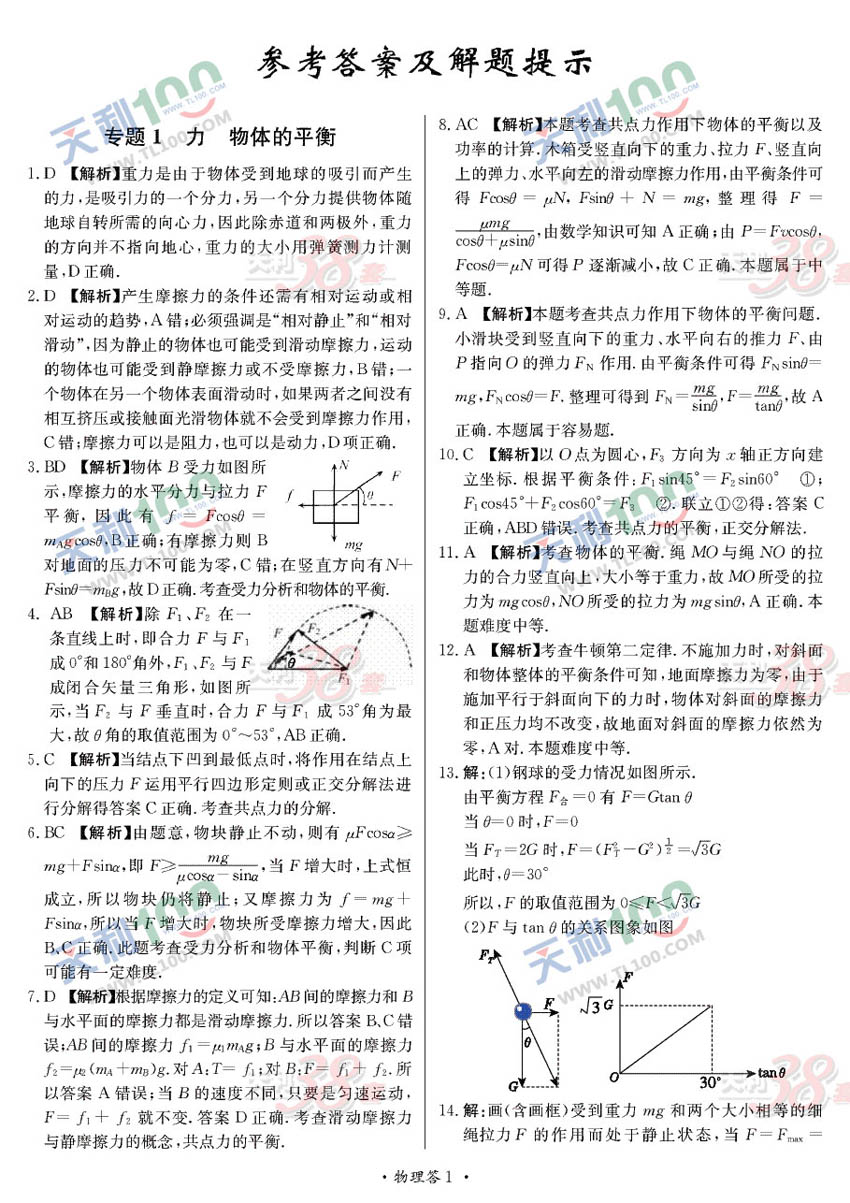 参考答案及解题提示
专题1 力 物体的平衡
1. D 【解析】重力是由于物体受到地球的吸引而产生
的力,是吸引力的一个分力,另一个分力提供物体随
地球自转所需的向心力,因此除赤道和两极外,重力
的方向并不指向地心,重力的大小用弹簧测力计测
量,D正确.
2. D 【解析】产生摩擦力的条件还需有相对运动或相
对运动的趋势,A错;必须强调是“相对静止”和“相对
滑动”,因为静止的物体也可能受到滑动摩擦力,运动
的物体也可能受到静摩擦力或不受摩擦力,B错;一
个物体在另一个物体表面滑动时,如果两者之间没有
相互挤压或接触面光滑物体就不会受到摩擦力作用,
C错;摩擦力可以是阻力,也可以是动力,D项正确.
3. BD 【解析】物体B受力如图所
示,摩擦力的水平分力与拉力F
平衡,因此有 f = Fcosθ =
mAgcosθ,B正确;有摩擦力则B
对地面的压力不可能为零,C错;在竖直方向有N+
Fsinθ=mBg,故D正确.考查受力分析和物体的平衡.
N
F
f
θ
mg
4. AB 【解析】除F₁、F₂在一
条直线上时,即合力F与F₁
成0°和180°角外,F₁、F₂与F
成闭合矢量三角形,如图所
示,当F₂与F垂直时,合力F与F₁成53°角为最
大,故θ角的取值范围为0°~53°,AB正确.
F
F₂
θ
F₁
5. C 【解析】当结点下凹到最低点时,将作用在结点上
向下的压力F运用平行四边形定则或正交分解法进
行分解得答案C正确.考查共点力的分解.
6. BC 【解析】由题意,物块静止不动,则有μFcosα≥
mg+Fsinα,即F≥mg/(μcosα−sinα),当F增大时,上式恒
成立,所以物块仍将静止;又摩擦力为f=mg+
Fsinα,所以当F增大时,物块所受摩擦力增大,因此
B、C正确.此题考查受力分析和物体平衡,判断C项
可能有一定难度.
7. D 【解析】根据摩擦力的定义可知:AB间的摩擦力和B
与水平面的摩擦力都是滑动摩擦力.所以答案B、C错
误;AB间的摩擦力f₁=μ₁mAg;B与水平面的摩擦力
f₂=μ₂(mA+mB)g.对A:T=f₁;对B:F=f₁+f₂.所
以答案A错误;当B的速度不同,只要是匀速运动,
F=f₁+f₂就不变.答案D正确.考查滑动摩擦力
与静摩擦力的概念,共点力的平衡.
8. AC 【解析】本题考查共点力作用下物体的平衡以及
功率的计算.木箱受竖直向下的重力、拉力F、竖直向
上的弹力、水平向左的滑动摩擦力作用,由平衡条件可
得 Fcosθ = μN, Fsinθ + N = mg, 整理得 F =
μmg/(cosθ+μsinθ),由数学知识可知A正确;由P=Fvcosθ,
Fcosθ=μN可得P逐渐减小,故C正确.本题属于中
等题.
9. A 【解析】本题考查共点力作用下物体的平衡问题.
小滑块受到竖直向下的重力、水平向右的推力F、由
P指向O的弹力FN作用.由平衡条件可得FNsinθ=
mg,FNcosθ=F.整理可得到FN=mg/sinθ,F=mg/tanθ,故A
正确.本题属于容易题.
10. C 【解析】以O点为圆心,F₃方向为x轴正方向建
立坐标.根据平衡条件:F₁sin45°=F₂sin60° ①;
F₁cos45°+F₂cos60°=F₃ ②.联立①②得:答案C
正确,ABD错误.考查共点力的平衡,正交分解法.
11. A 【解析】考查物体的平衡.绳MO与绳NO的拉
力的合力竖直向上,大小等于重力,故MO所受的拉
力为mgcosθ,NO所受的拉力为mgsinθ,A正确.本
题难度中等.
12. A 【解析】考查牛顿第二定律.不施加力时,对斜面
和物体整体的平衡条件可知,地面摩擦力为零,由于
施加平行于斜面向下的力时,物体对斜面的摩擦力
和正压力均不改变,故地面对斜面的摩擦力依然为
零,A对.本题难度中等.
13. 解:(1)钢球的受力情况如图所示.
由平衡方程F合=0有F=Gtan θ
当θ=0时,F=0
当FT=2G时,F=(F²T−G²)^½=√3G
此时,θ=30°
所以,F的取值范围为0≤F≤√3G
(2)F与tan θ的关系图象如图
FT
F
θ
G
F
√3G
O
30°
tanθ
14. 解:画(含画框)受到重力mg和两个大小相等的细
绳拉力F的作用而处于静止状态,当F=Fmax=
·物理答1·
天利100
WWW.TL100.COM
天利38套